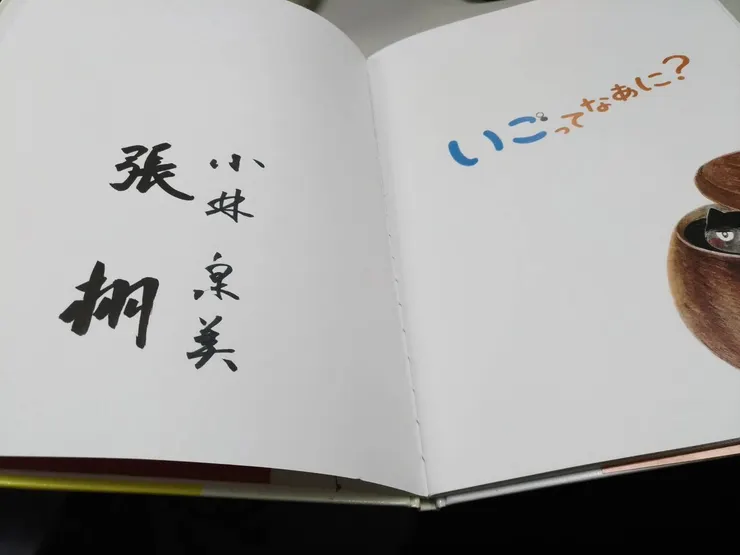 小林 泉美
張 栩
いごってなあに?